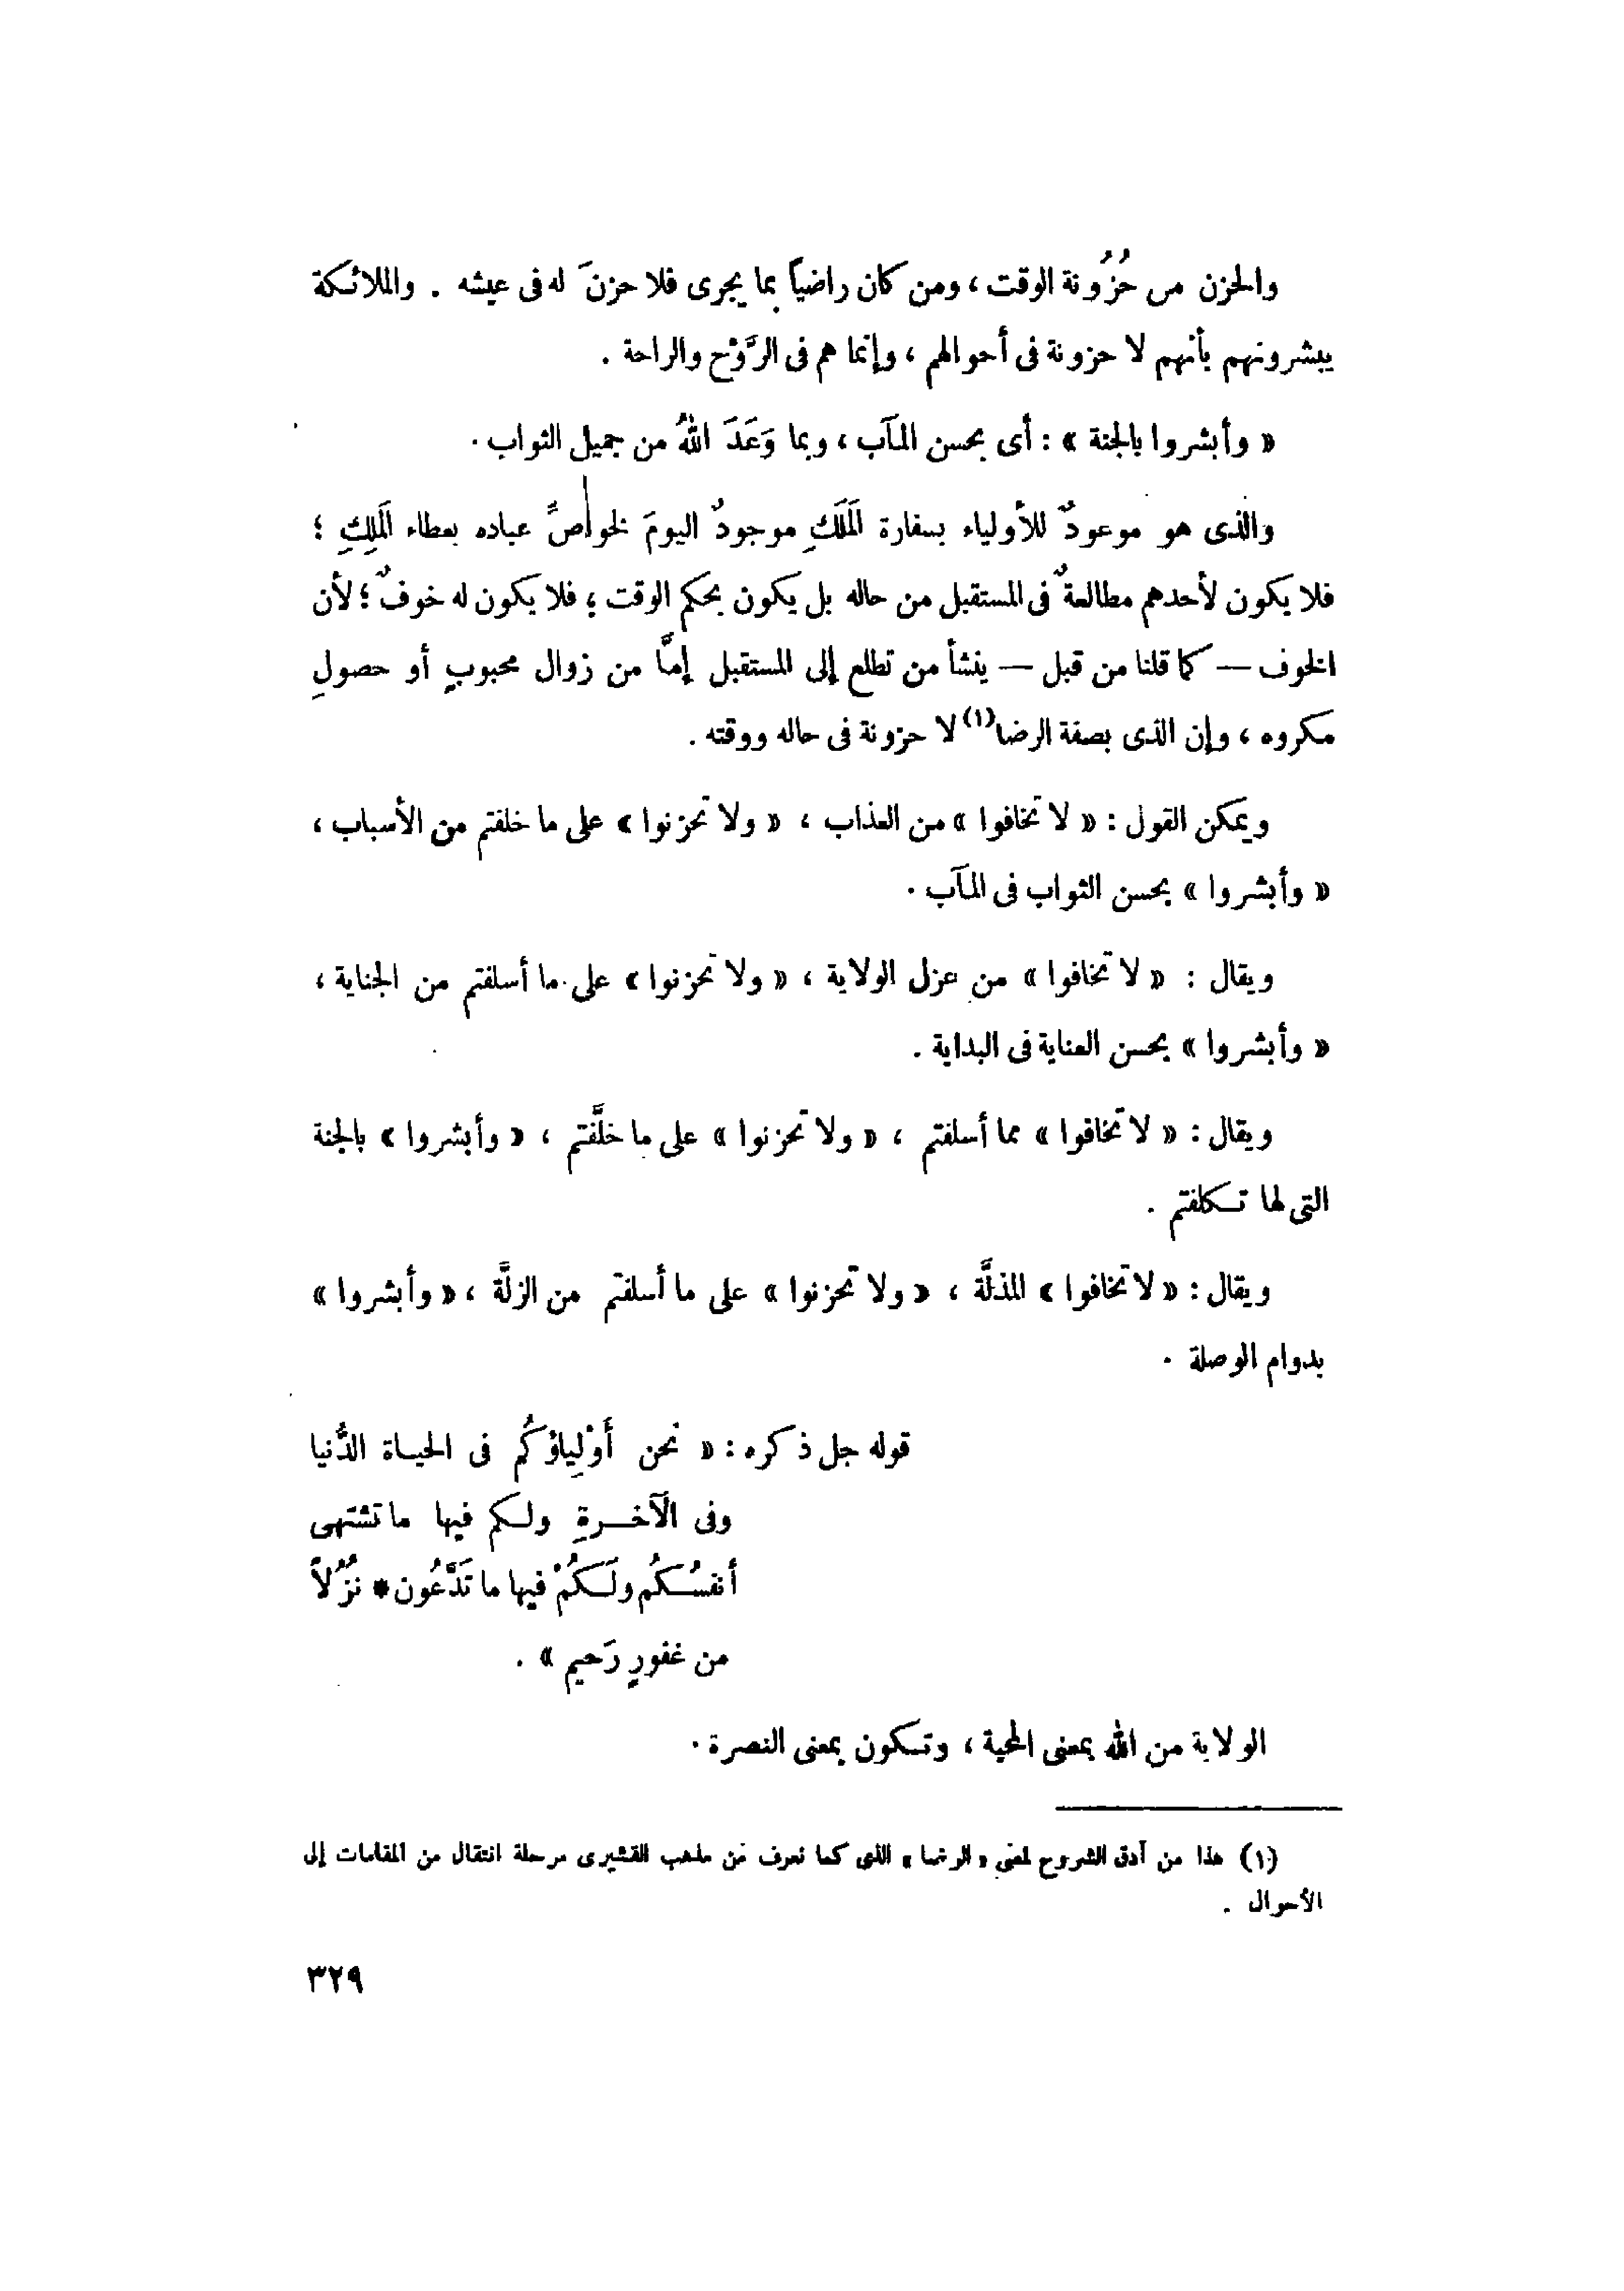 والحزن من حُزُونة الوقت ، ومن كان راضياً بما يجرى فلا حزنَ له فى عيشه . والملائكة
يبشرونهم بأنهم لا حزونة فى أحوالهم ، وإنما هم فى الرَّوْح والراحة .
« وأبشروا بالجنة » : أى بحسن المآب ، وبما وَعَدَ اللهُ من جميل الثواب .
والذى هو موعودٌ للأولياء بسفارة المَلَكِ موجودٌ اليومَ لخواصِّ عباده بعطاء المَلِكِ ؛
فلا يكون لأحدهم مطالعةٌ فى المستقبل من حاله بل يكون بحكم الوقت ؛ فلا يكون له خوفٌ ؛ لأن
الخوف — كما قلنا من قبل — ينشأ من تطلع إلى المستقبل إمَّا من زوال محبوبٍ أو حصولِ
مكروه ، وإن الذى بصفة الرضا(١) لا حزونة فى حاله ووقته .
ويمكن القول : « لا تخافوا » من العذاب ، « ولا تحزنوا » على ما خلفتم من الأسباب ،
« وأبشروا » بحسن الثواب فى المآب .
ويقال : « لا تخافوا » من عزل الولاية ، « ولا تحزنوا » على ما أسلفتم من الجناية ،
« وأبشروا » بحسن العناية فى البداية .
ويقال : « لا تخافوا » مما أسلفتم ، « ولا تحزنوا » على ما خلَّفتم ، « وأبشروا » بالجنة
التى لها تكلفتم .
ويقال : « لا تخافوا » المذلَّة ، « ولا تحزنوا » على ما أسلفتم من الزلَّة ، « وأبشروا »
بدوام الوصلة .
قوله جل ذكره : « نحن أَوْلِياؤكُم فى الحياة الدُّنيا
وفى الآخرةِ ولكم فيها ما تشتهى
أنفسُكُم ولَكُمْ فيها ما تَدَّعُون * نُزُلاً
من غفورٍ رَحيم » .
الولاية من الله بمعنى المحبة ، وتكون بمعنى النصرة .
(١) هذا من أدق الشروح لمعنى « الرضا » الذى كما نعرف من مذهب القشيرى مرحلة انتقال من المقامات إلى
الأحوال .
٣٢٩